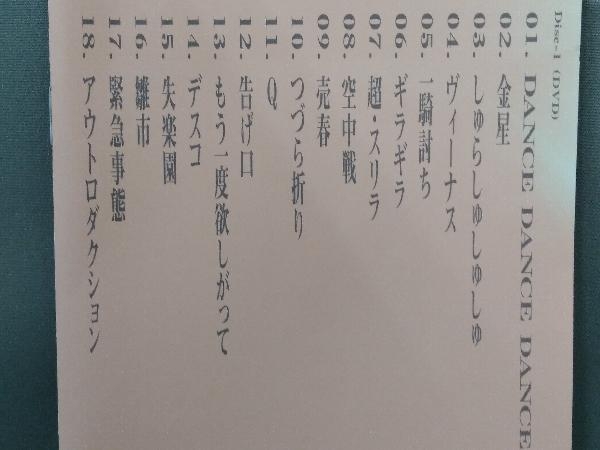 Disc-1 (DVD)
01. DANCE DANCE DANCE
02. 金星
03. しゅらしゅしゅしゅ
04. ヴィーナス
05. 一騎討ち
06. ギラギラ
07. 超・スリラ
08. 空中戦
09. 売春
10. つづら折り
11. Q
12. 告げ口
13. もう一度欲しがって
14. デスコ
15. 失楽園
16. 雛市
17. 緊急事態
18. アウトロダクション